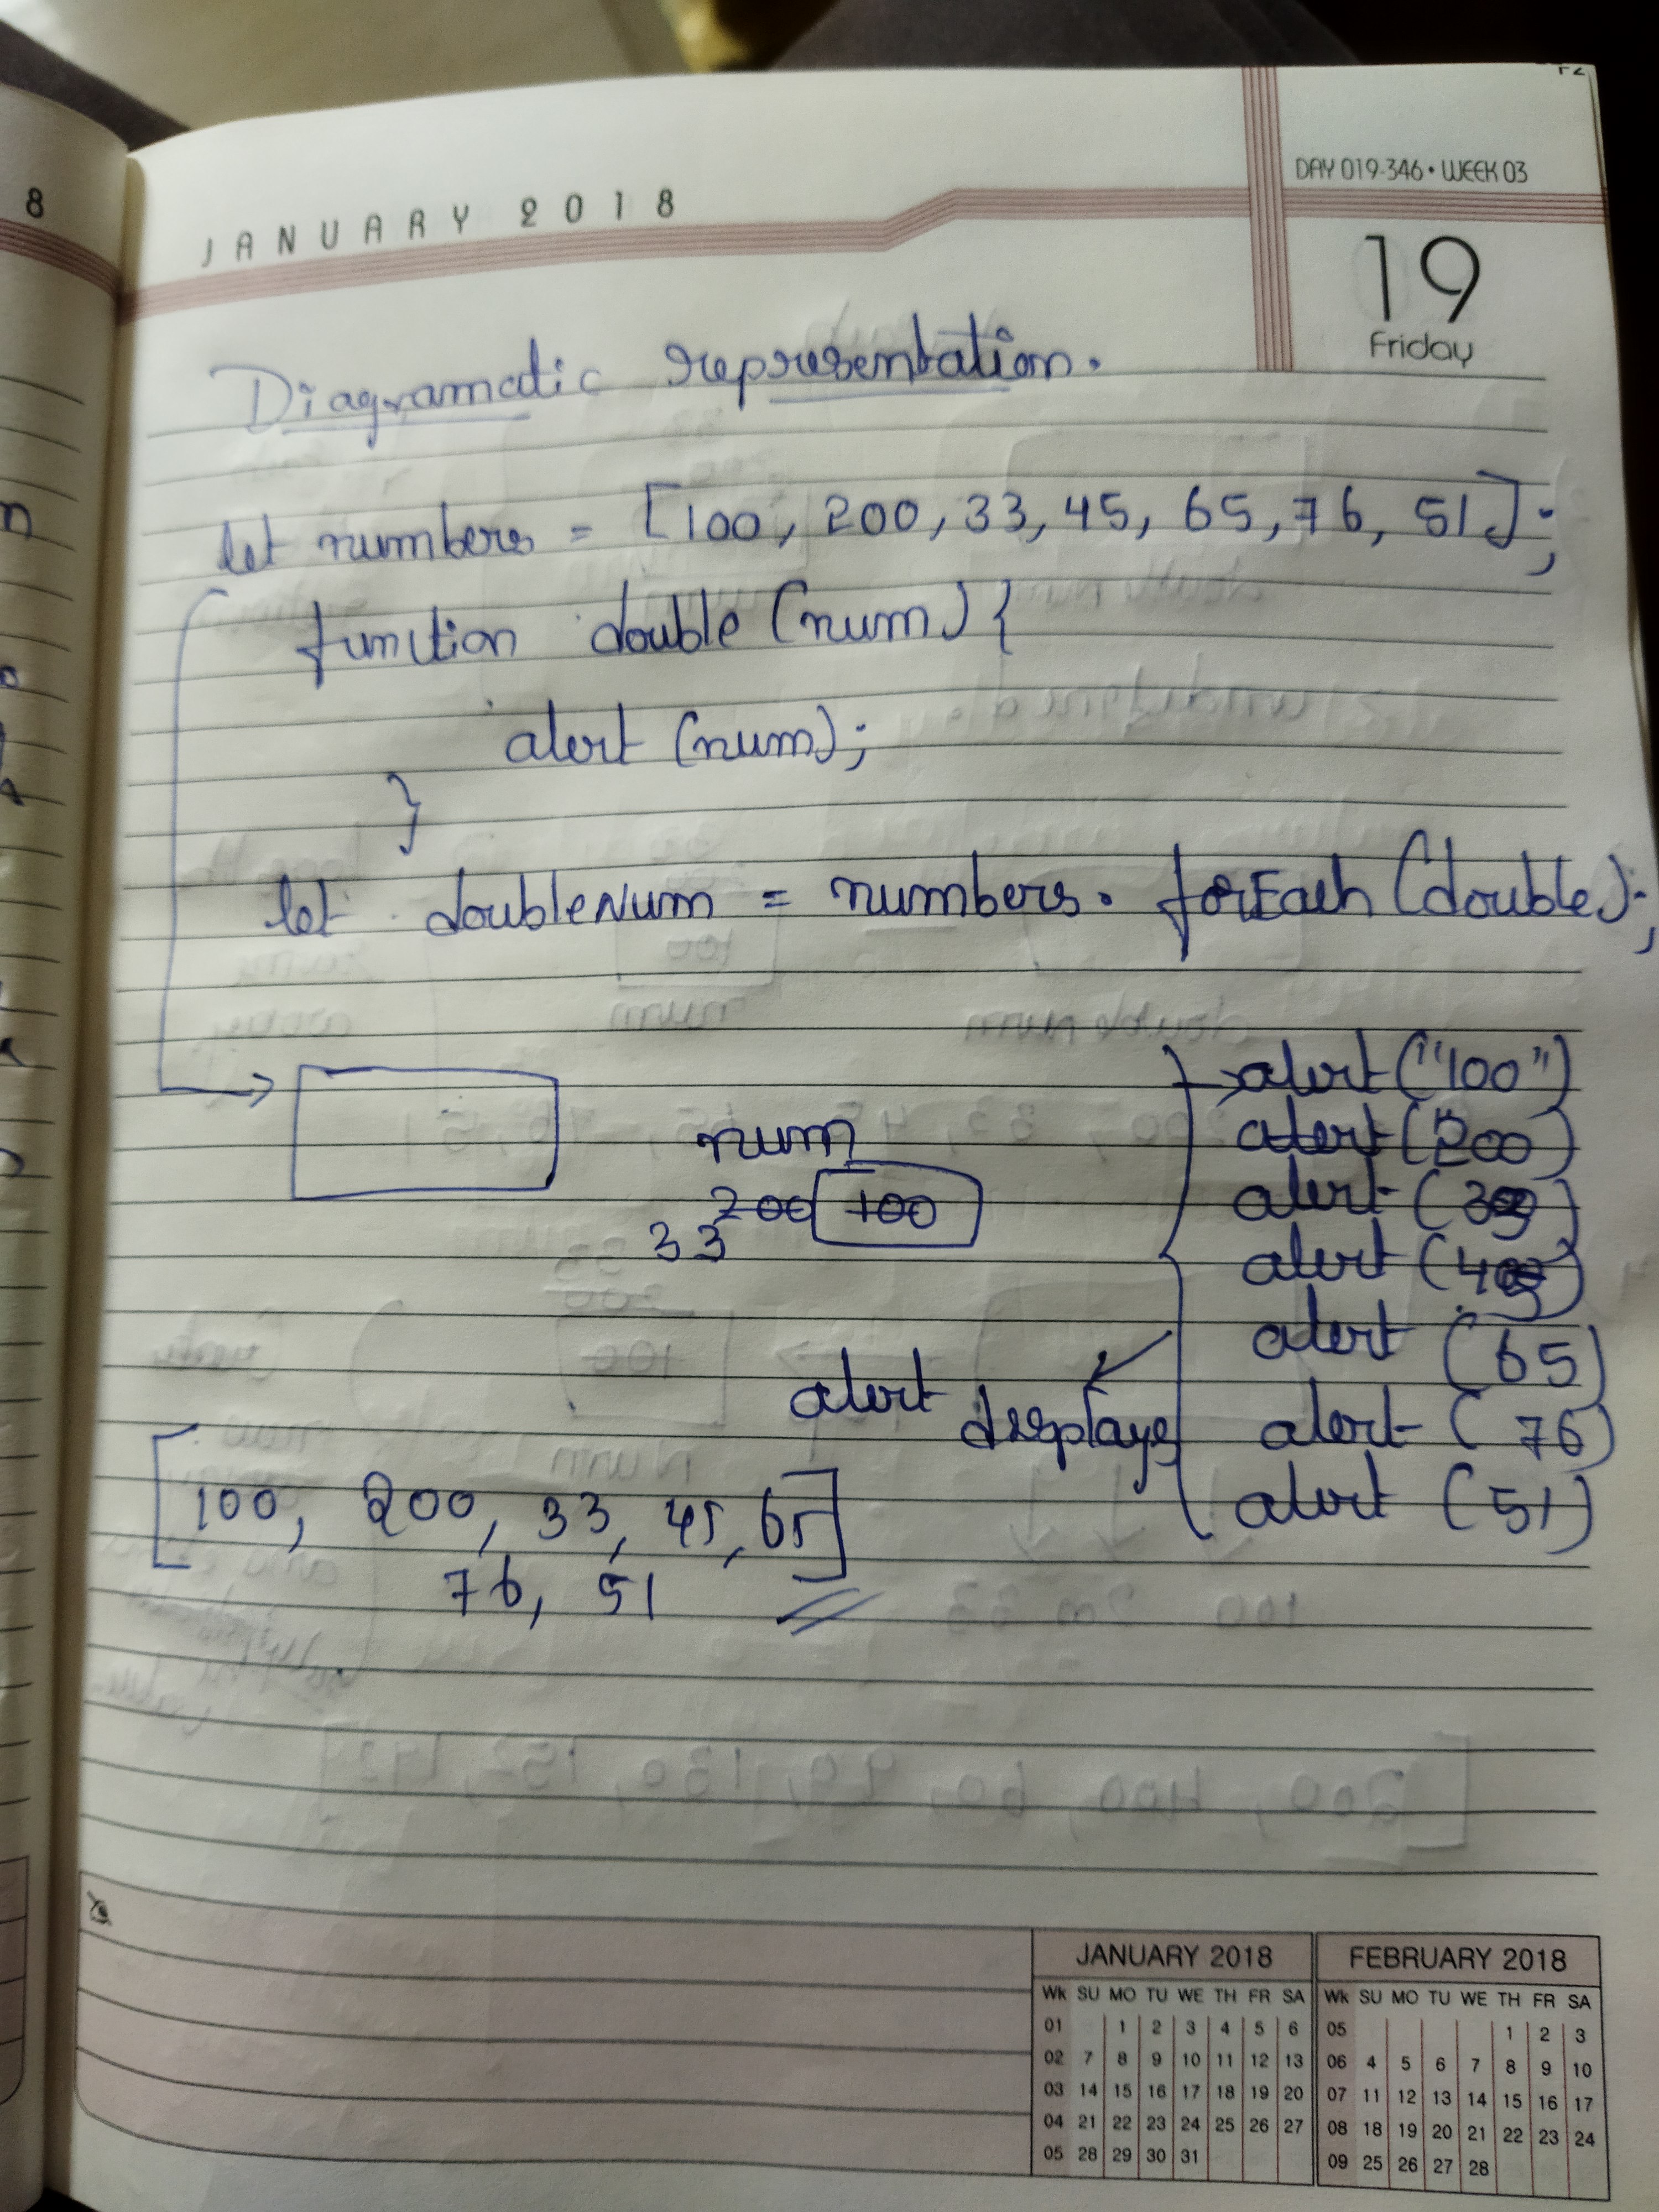 8
JANUARY 2018
DAY 019-346 • WEEK 03
19
Friday
Diagramatic representation.
let numbers = [100, 200, 33, 45, 65, 76, 51];
function double (num) {
alert (num);
}
let doubleNum = numbers. forEach (double);
alert ("100")
num
alert (200)
200 100
alert (33)
33
alert (45)
alert (65)
alert displays
alert (76)
[100, 200, 33, 45, 65]
alert (51)
76, 51
JANUARY 2018
Wk SU MO TU WE TH FR SA
01 1 2 3 4 5 6
02 7 8 9 10 11 12 13
03 14 15 16 17 18 19 20
04 21 22 23 24 25 26 27
05 28 29 30 31
FEBRUARY 2018
Wk SU MO TU WE TH FR SA
05 1 2 3
06 4 5 6 7 8 9 10
07 11 12 13 14 15 16 17
08 18 19 20 21 22 23 24
09 25 26 27 28